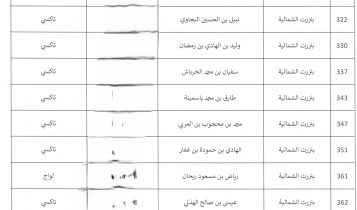 322 بنزرت الشمالية نبيل بن الحسين البجاوي تاكسي
330 بنزرت الشمالية وليد بن الهادي بن رمضان تاكسي
337 بنزرت الشمالية سفيان بن محمد الخرباش تاكسي
343 بنزرت الشمالية طارق بن محمد ياسمينة تاكسي
347 بنزرت الشمالية محمد بن محجوب بن العربي تاكسي
351 بنزرت الشمالية الهادي بن حمودة بن غفار تاكسي
361 بنزرت الشمالية رياض بن مسعود ريحان لواج
362 بنزرت الشمالية عيسى بن صالح الهذلي تاكسي